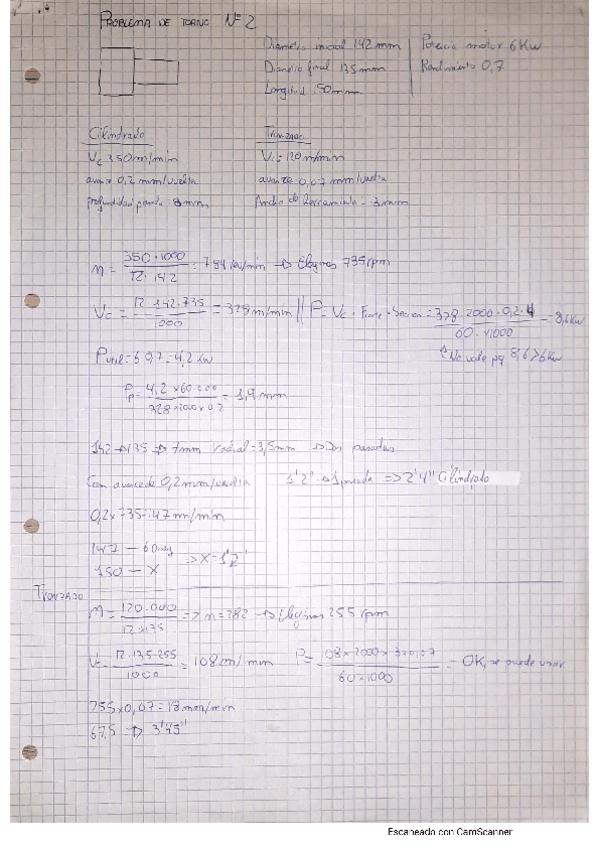 PROBLEMA DE TORNO Nº 2
Diámetro inicial 142 mm
Diametro final 135 mm
Longitud 150 mm
Potencia motor 6 Kw
Rendimiento 0,7
Cilindrado
Vc 350 m/min
avance 0,2 mm/vuelta
profundidad pasada = 8 mm
Tronzado
Vc = 120 m/min
avance 0,07 mm/vuelta
Ancho de herramienta = 3 mm
n = 350 · 1000 / π · 142 = 784 rev/min → Elegimos 735 rpm
Vc = π · 142 · 735 / 1000 = 328 m/min || P = Vc · Fuerza · Seccion = 328 · 2000 · 0,2 · 4 / 60 · 1000 = 8,6 Kw
No vale pq 8,6 > 6 Kw
P util = 6 · 0,7 = 4,2 Kw
P = 4,2 x 60000 / 328 x 2000 x 0,2 = 1,9 mm
142 → 135 → 7 mm radial = 3,5 mm → Dos pasadas
Con avance de 0,2 mm/vuelta 1'2' → 1 pasada => 2'4'' Cilindrado
0,2 x 735 = 147 mm/min
147 — 60 seg
150 — X => X = 1'2'
Tronzado
n = 120.000 / π x 135 => n = 282 → Elegimos 255 rpm
Vc = π · 135 · 255 / 1000 = 108 m/min P = 108 x 2000 x 3 x 0,07 / 60 · 1000 = OK, se puede usar
255 x 0,07 = 18 mm/min
67,5 → 3'45''
Escaneado con CamScanner